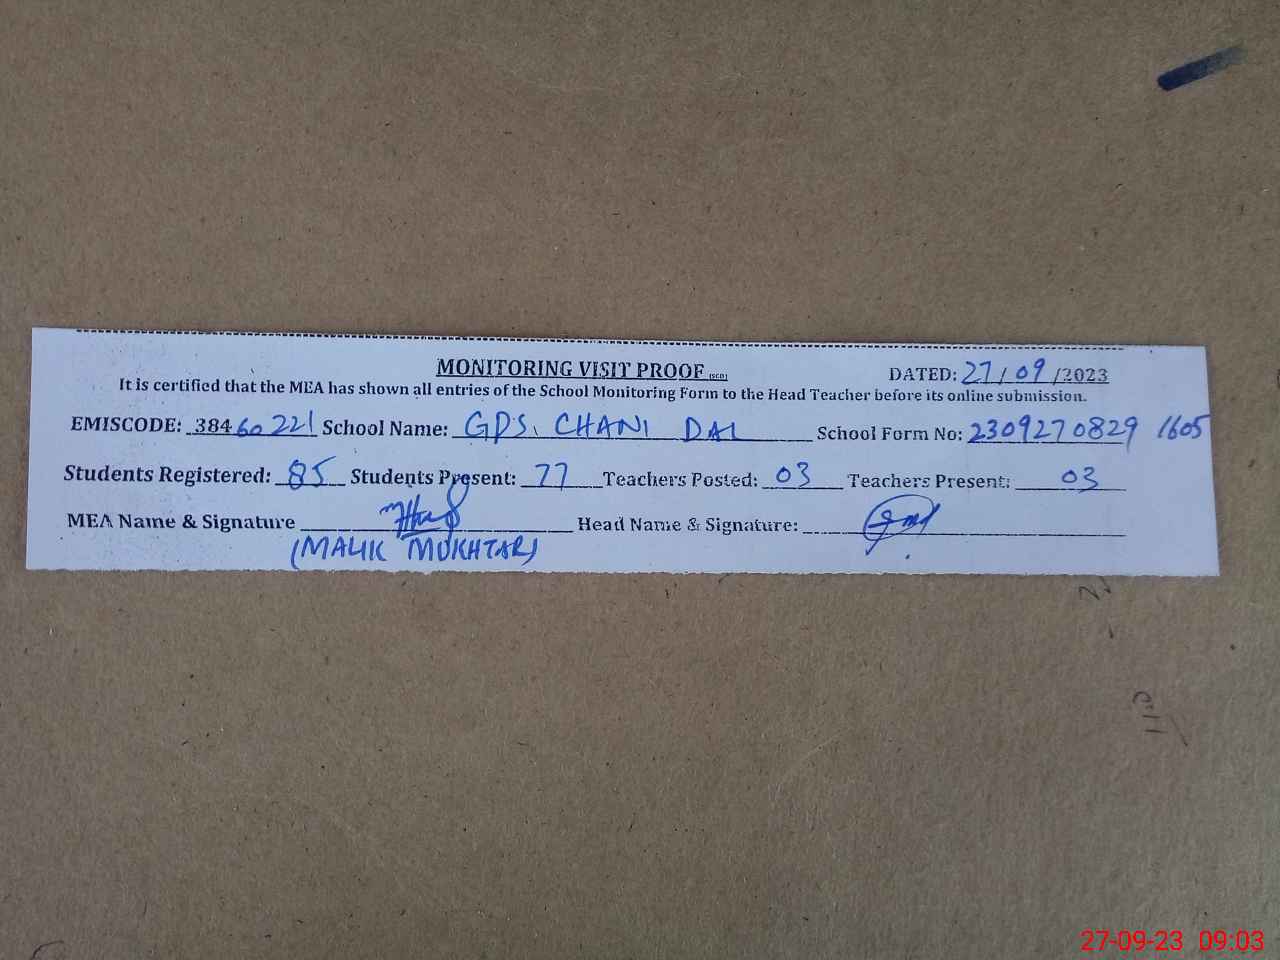 MONITORING VISIT PROOF (SED) DATED: 27/09/2023
It is certified that the MEA has shown all entries of the School Monitoring Form to the Head Teacher before its online submission.
EMISCODE: 38460221 School Name: GPS, CHANI DAL School Form No: 2309270829 1605
Students Registered: 85 Students Present: 77 Teachers Posted: 03 Teachers Present: 03
MEA Name & Signature Head Name & Signature:
(MALIK MUKHTAR)
27-09-23 09:03